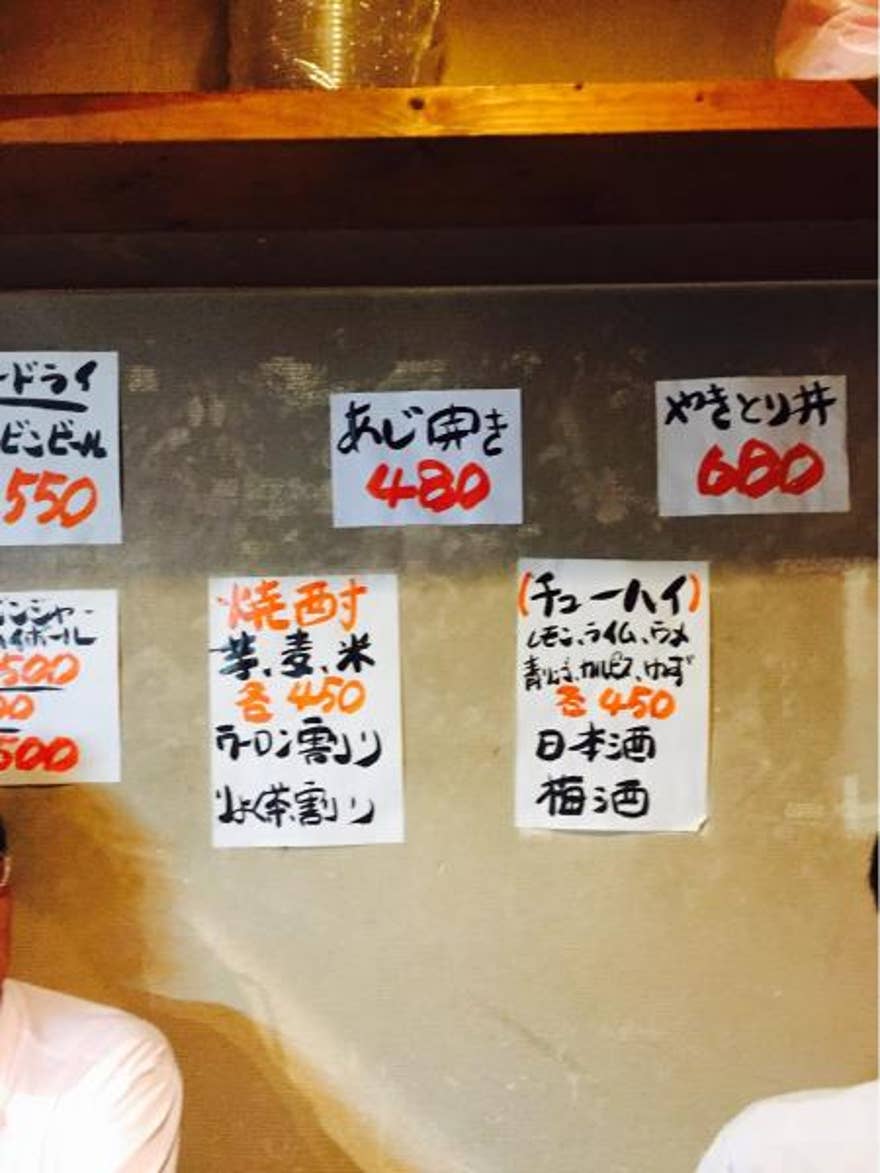 ードライ
ビンビール
550
あじ開き
480
やきとり丼
680
ンジャー
ハイボール
500
00
500
焼酎
芋、麦、米
各450
ウーロン割り
りょく茶割り
(チューハイ)
レモン、ライム、ウメ
青りんご、カルピス、ゆず
各450
日本酒
梅酒